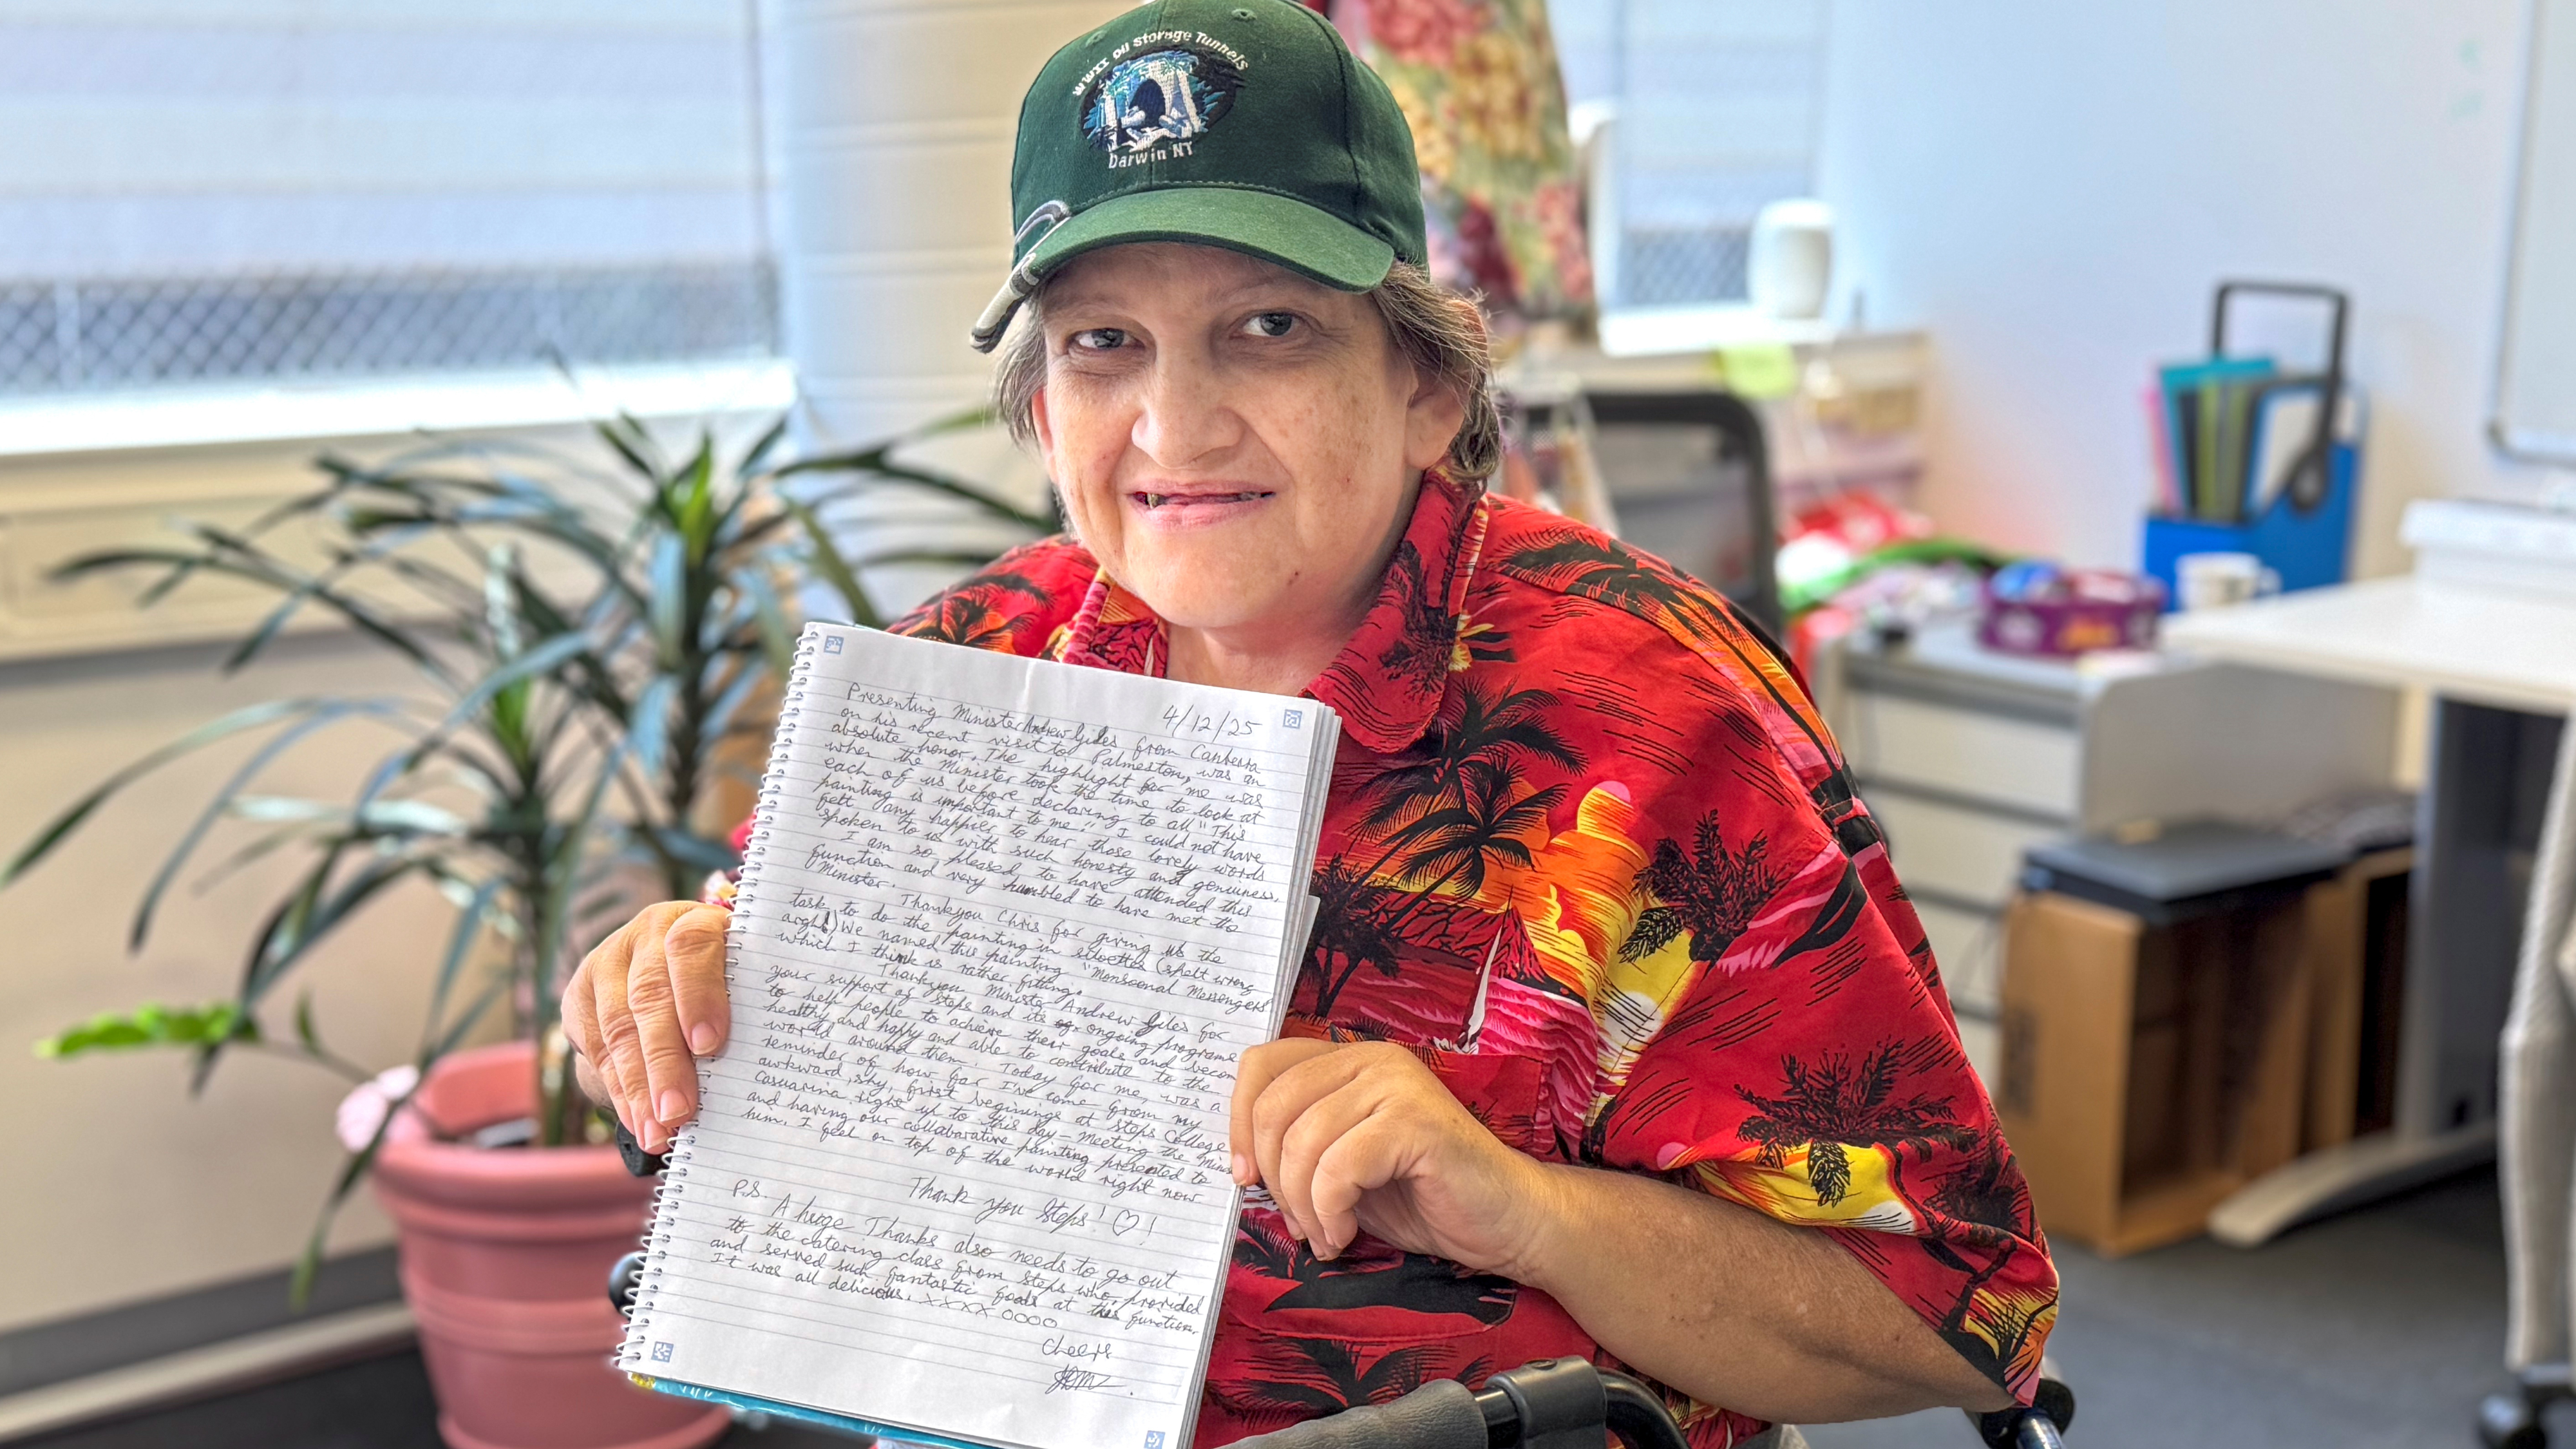 WWII Oil Storage Tunnels
Darwin NT
4/12/25
Presenting Minister Andrew Giles from Canberra
on his recent visit to Palmerston, was an
absolute honor. The highlight for me was
when the Minister took the time to look at
each of us before declaring to all "This
painting is important to me". I could not have
felt any happier to hear those lovely words
spoken to us with such honesty and genuiness.
I am so pleased to have attended this
function and very humbled to have met the
Minister.
Thankyou Chris for giving us the
task to do the painting in (spelt wrong
argh!) We named this painting "Monsoonal Messengers"
which I think is rather fitting.
Thankyou Minister Andrew Giles for
your support of Steps and its ongoing programs
to help people to achieve their goals and become
healthy and happy and able to contribute to the
world around them. Today for me, was a
reminder of how far I've come from my
awkward, shy, first beginings at Steps College
Casuarina right up to this day - Meeting the Minis
and having our collaborative painting presented to
him. I feel on top of the world right now
Thank you Steps! ♡!
P.S. A huge Thanks also needs to go out
to the catering class from Steps who provided
and served such fantastic foods at this function.
It was all delicious. XXXX OOOO
Cheers